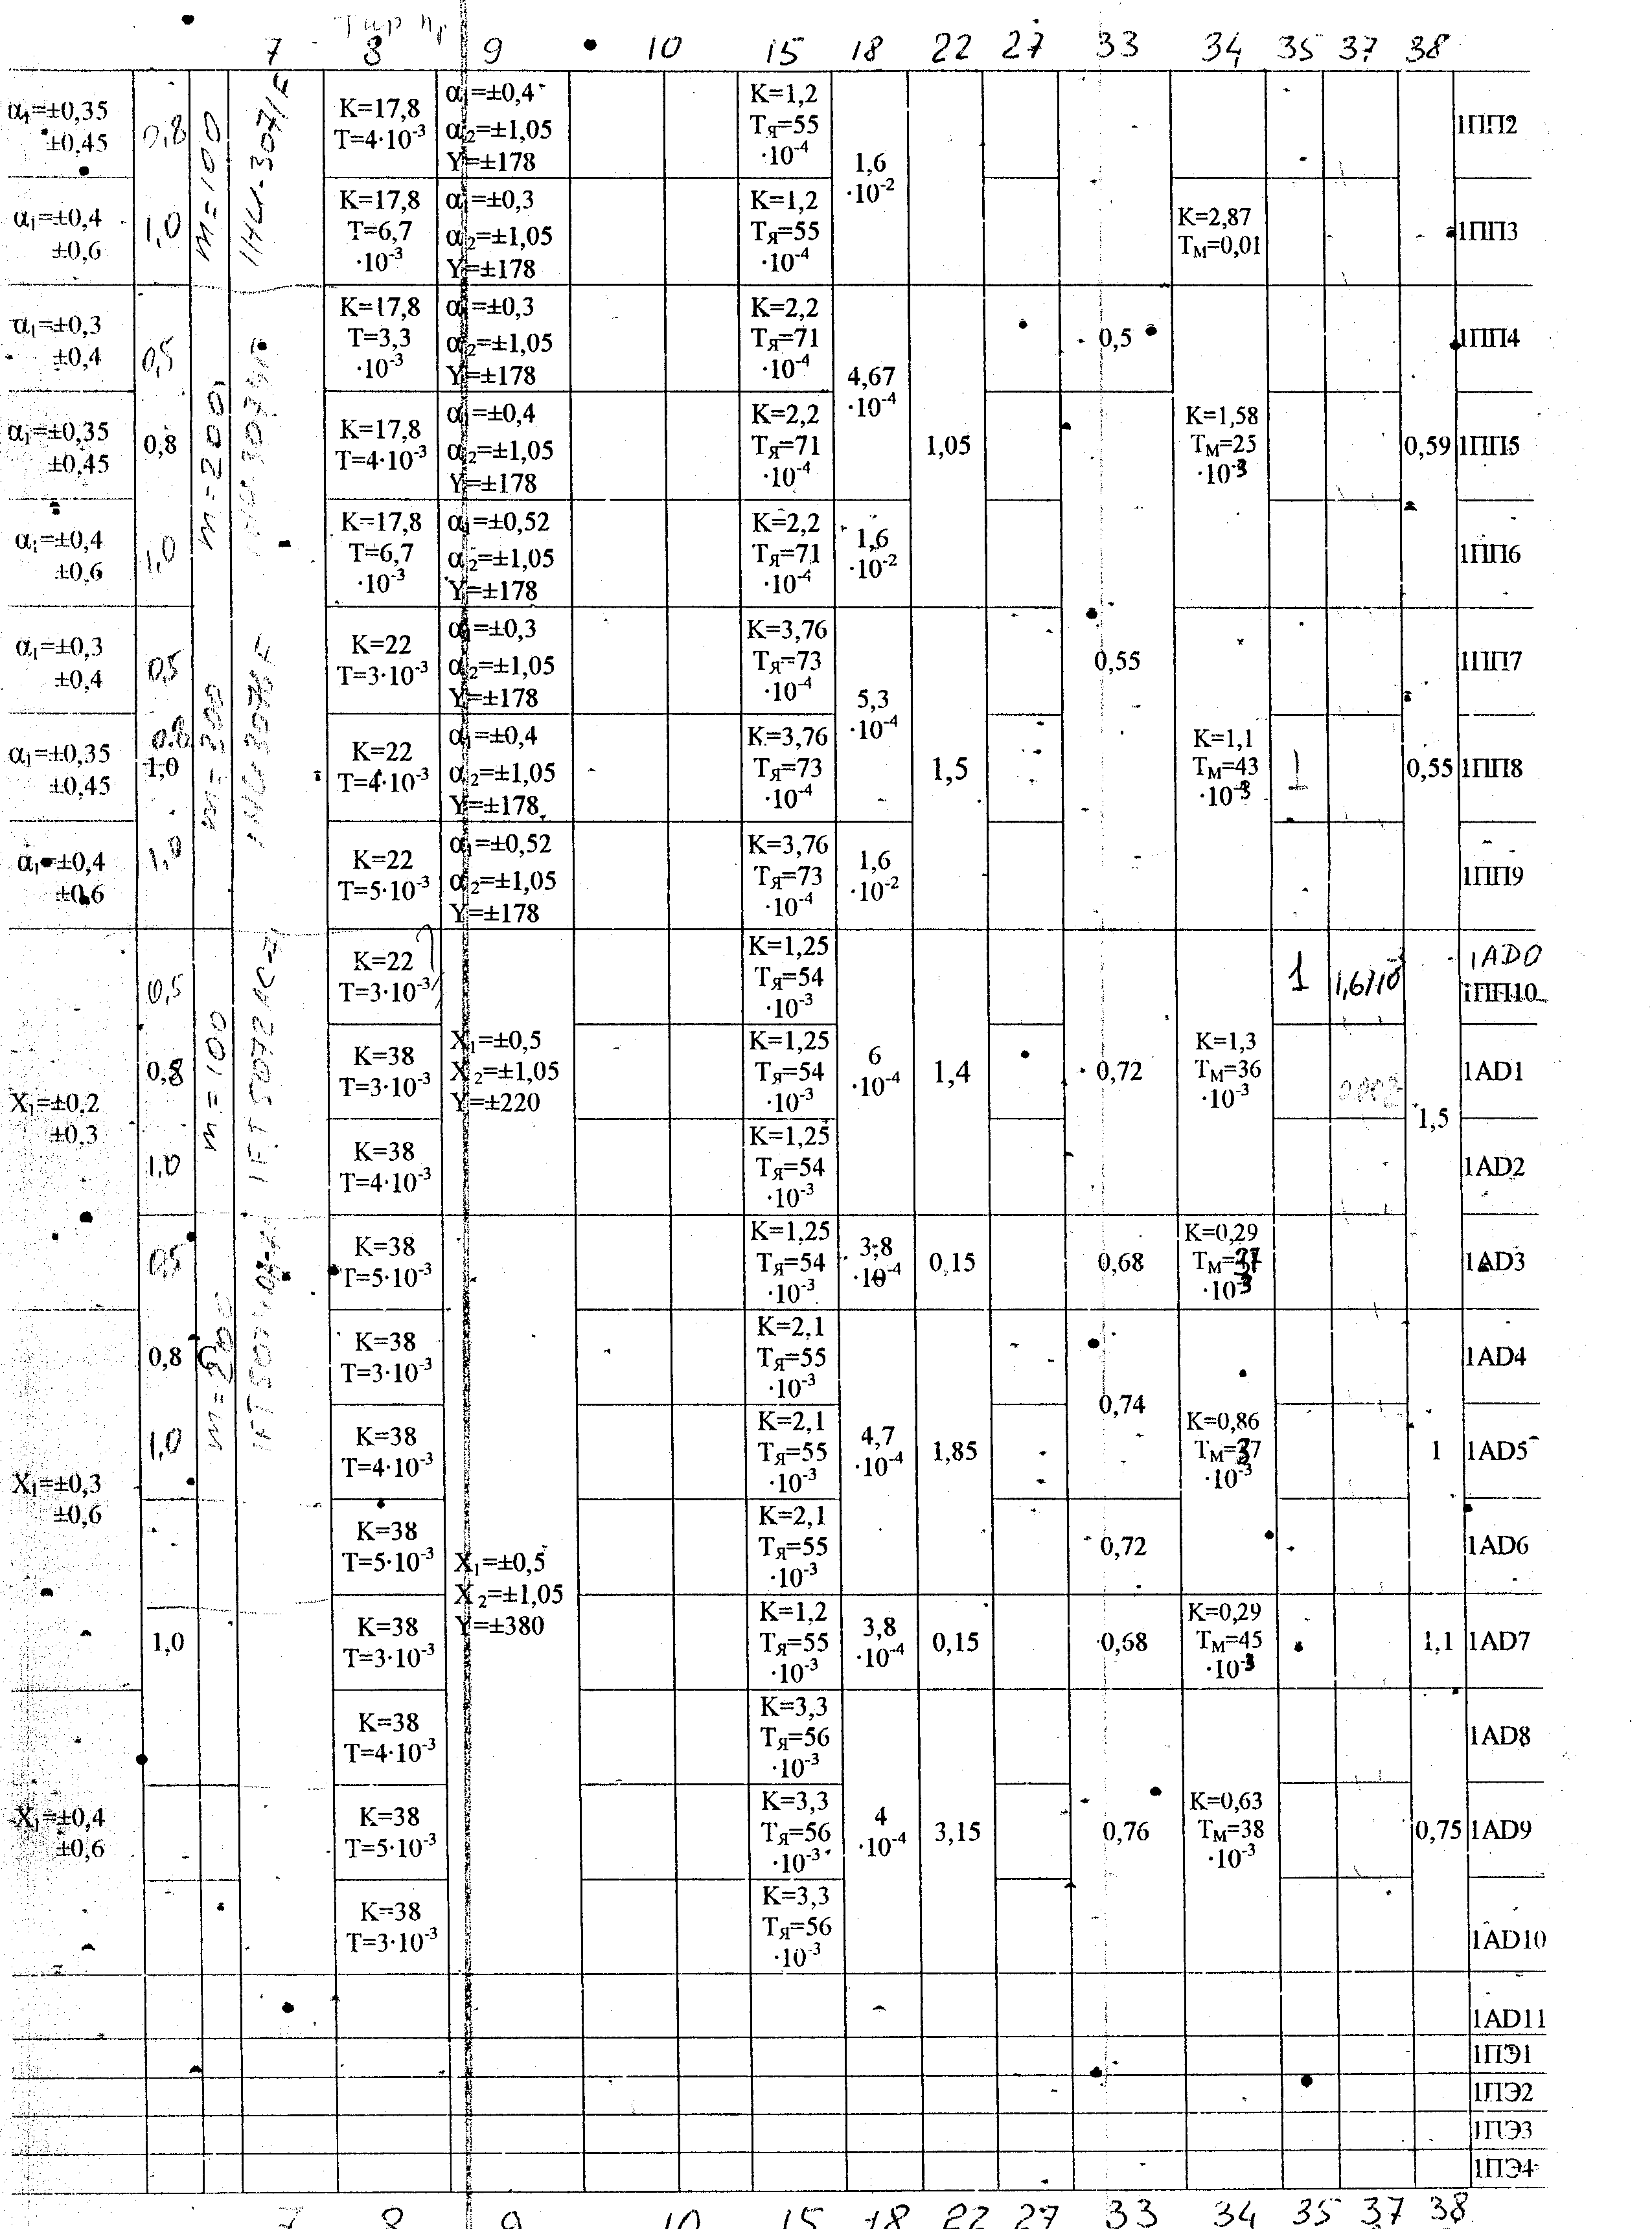 7 8 9 10 15 18 22 27 33 34 35 37 38
α₁=±0,35
±0,45
0,8
m=100
K=17,8
T=4·10⁻³
α₁=±0,4
α₂=±1,05
Y=±178
K=1,2
Tя=55
·10⁻⁴
1,6
·10⁻²
1ПП2
α₁=±0,4
±0,6
1,0
K=17,8
T=6,7
·10⁻³
α₁=±0,3
α₂=±1,05
Y=±178
K=1,2
Tя=55
·10⁻⁴
K=2,87
Tм=0,01
1ПП3
α₁=±0,3
±0,4
0,5
m=200
K=17,8
T=3,3
·10⁻³
α₁=±0,3
α₂=±1,05
Y=±178
K=2,2
Tя=71
·10⁻⁴
4,67
·10⁻⁴
0,5
1ПП4
α₁=±0,35
±0,45
0,8
K=17,8
T=4·10⁻³
α₁=±0,4
α₂=±1,05
Y=±178
K=2,2
Tя=71
·10⁻⁴
1,05
K=1,58
Tм=25
·10⁻³
0,59
1ПП5
α₁=±0,4
±0,6
1,0
K=17,8
T=6,7
·10⁻³
α₁=±0,52
α₂=±1,05
Y=±178
K=2,2
Tя=71
·10⁻⁴
1,6
·10⁻²
1ПП6
α₁=±0,3
±0,4
0,5
m=300
K=22
T=3·10⁻³
α₁=±0,3
α₂=±1,05
Y=±178
K=3,76
Tя=73
·10⁻⁴
5,3
·10⁻⁴
0,55
1ПП7
α₁=±0,35
±0,45
0,8
1,0
K=22
T=4·10⁻³
α₁=±0,4
α₂=±1,05
Y=±178
K=3,76
Tя=73
·10⁻⁴
1,5
K=1,1
Tм=43
·10⁻³
1
0,55
1ПП8
α₁=±0,4
±0,6
1,0
K=22
T=5·10⁻³
α₁=±0,52
α₂=±1,05
Y=±178
K=3,76
Tя=73
·10⁻⁴
1,6
·10⁻²
1ПП9
0,5
m=100
K=22
T=3·10⁻³
K=1,25
Tя=54
·10⁻³
1
1AD0
1ПП10
X₁=±0,2
±0,3
0,8
K=38
T=3·10⁻³
X₁=±0,5
X₂=±1,05
Y=±220
K=1,25
Tя=54
·10⁻³
6
·10⁻⁴
1,4
0,72
K=1,3
Tм=36
·10⁻³
1,5
1AD1
1,0
K=38
T=4·10⁻³
K=1,25
Tя=54
·10⁻³
1AD2
0,5
K=38
T=5·10⁻³
K=1,25
Tя=54
·10⁻³
3,8
·10⁻⁴
0,15
0,68
K=0,29
·10⁻³
1AD3
0,8
m=200
K=38
T=3·10⁻³
K=2,1
Tя=55
·10⁻³
0,74
1AD4
X₁=±0,3
±0,6
1,0
K=38
T=4·10⁻³
K=2,1
Tя=55
·10⁻³
4,7
·10⁻⁴
1,85
K=0,86
Tм=37
·10⁻³
1
1AD5
K=38
T=5·10⁻³
X₁=±0,5
X₂=±1,05
Y=±380
K=2,1
Tя=55
·10⁻³
0,72
1AD6
1,0
K=38
T=3·10⁻³
K=1,2
Tя=55
·10⁻³
3,8
·10⁻⁴
0,15
0,68
K=0,29
Tм=45
·10⁻³
1,1
1AD7
K=38
T=4·10⁻³
K=3,3
Tя=56
·10⁻³
1AD8
X₁=±0,4
±0,6
K=38
T=5·10⁻³
K=3,3
Tя=56
·10⁻³
4
·10⁻⁴
3,15
0,76
K=0,63
Tм=38
·10⁻³
0,75
1AD9
K=38
T=3·10⁻³
K=3,3
Tя=56
·10⁻³
1AD10
1AD11
1ПЭ1
1ПЭ2
1ПЭ3
1ПЭ4
7 8 9 10 15 18 22 27 33 34 35 37 38